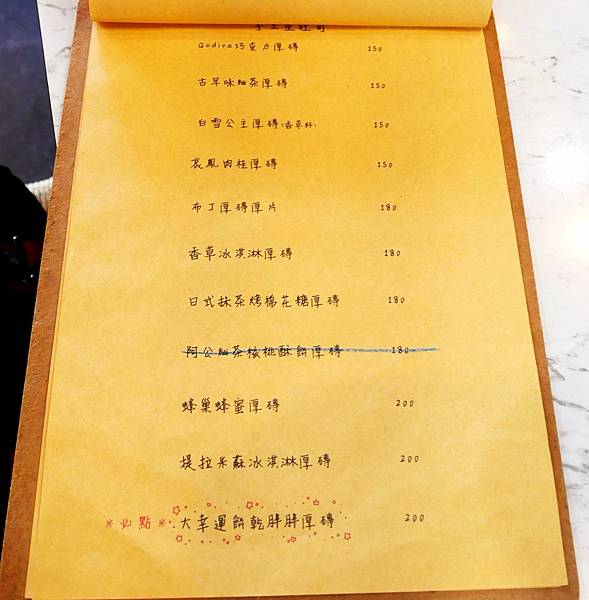 手工生吐司
Godiva巧克力厚磚 150
古早味麵茶厚磚 150
白雪公主厚磚(香草籽) 150
哀鳳肉桂厚磚 150
布丁厚磚厚片 180
香草冰淇淋厚磚 180
日式抹茶烤棉花糖厚磚 180
阿公麵茶核桃酥餅厚磚 180
蜂巢蜂蜜厚磚 200
提拉米蘇冰淇淋厚磚 200
※必點※大幸運餅乾胖胖厚磚 200